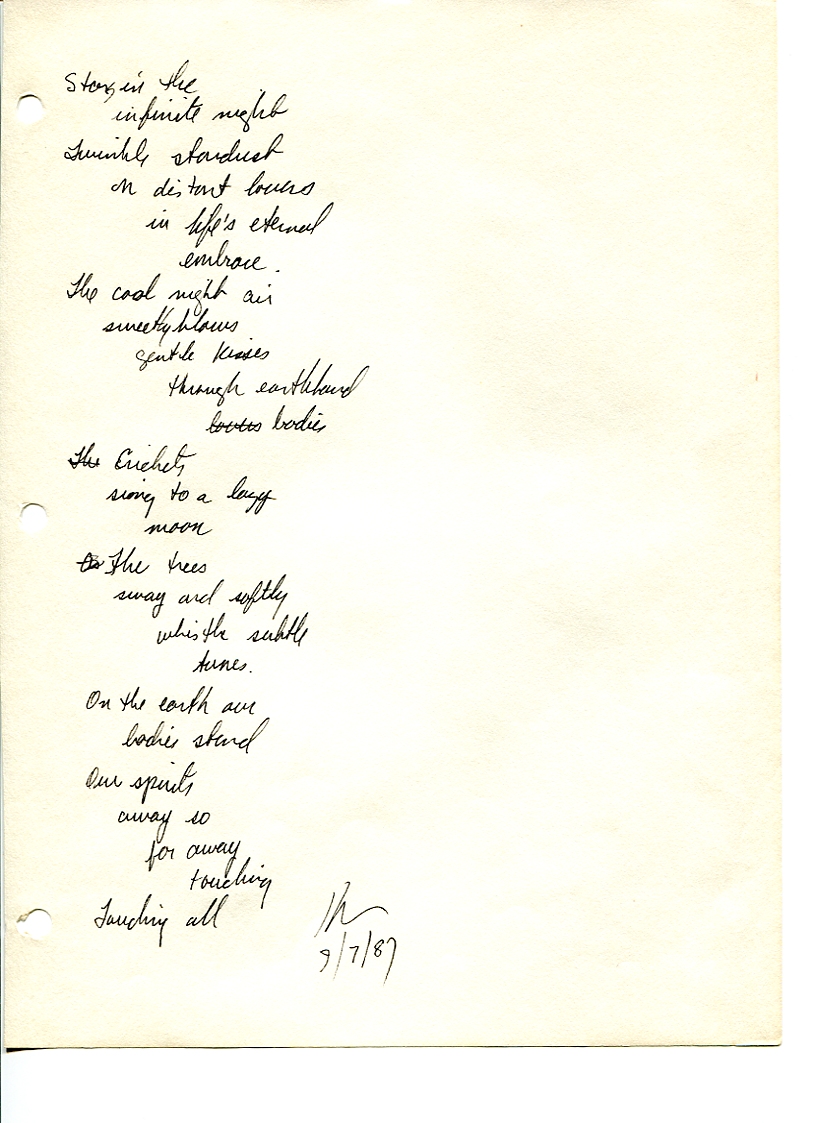 Stars in the
infinite night
Twinkle stardust
on distant lovers
in life's eternal
embrace.
The cool night air
sweetly blows
gentle kisses
through earthbound
lovers bodies
The Crickets
sing to a lazy
moon
The trees
sway and softly
whistle subtle
tunes.
On the earth our
bodies stand
Our spirits
away so
far away
touching
Touching all
9/7/87